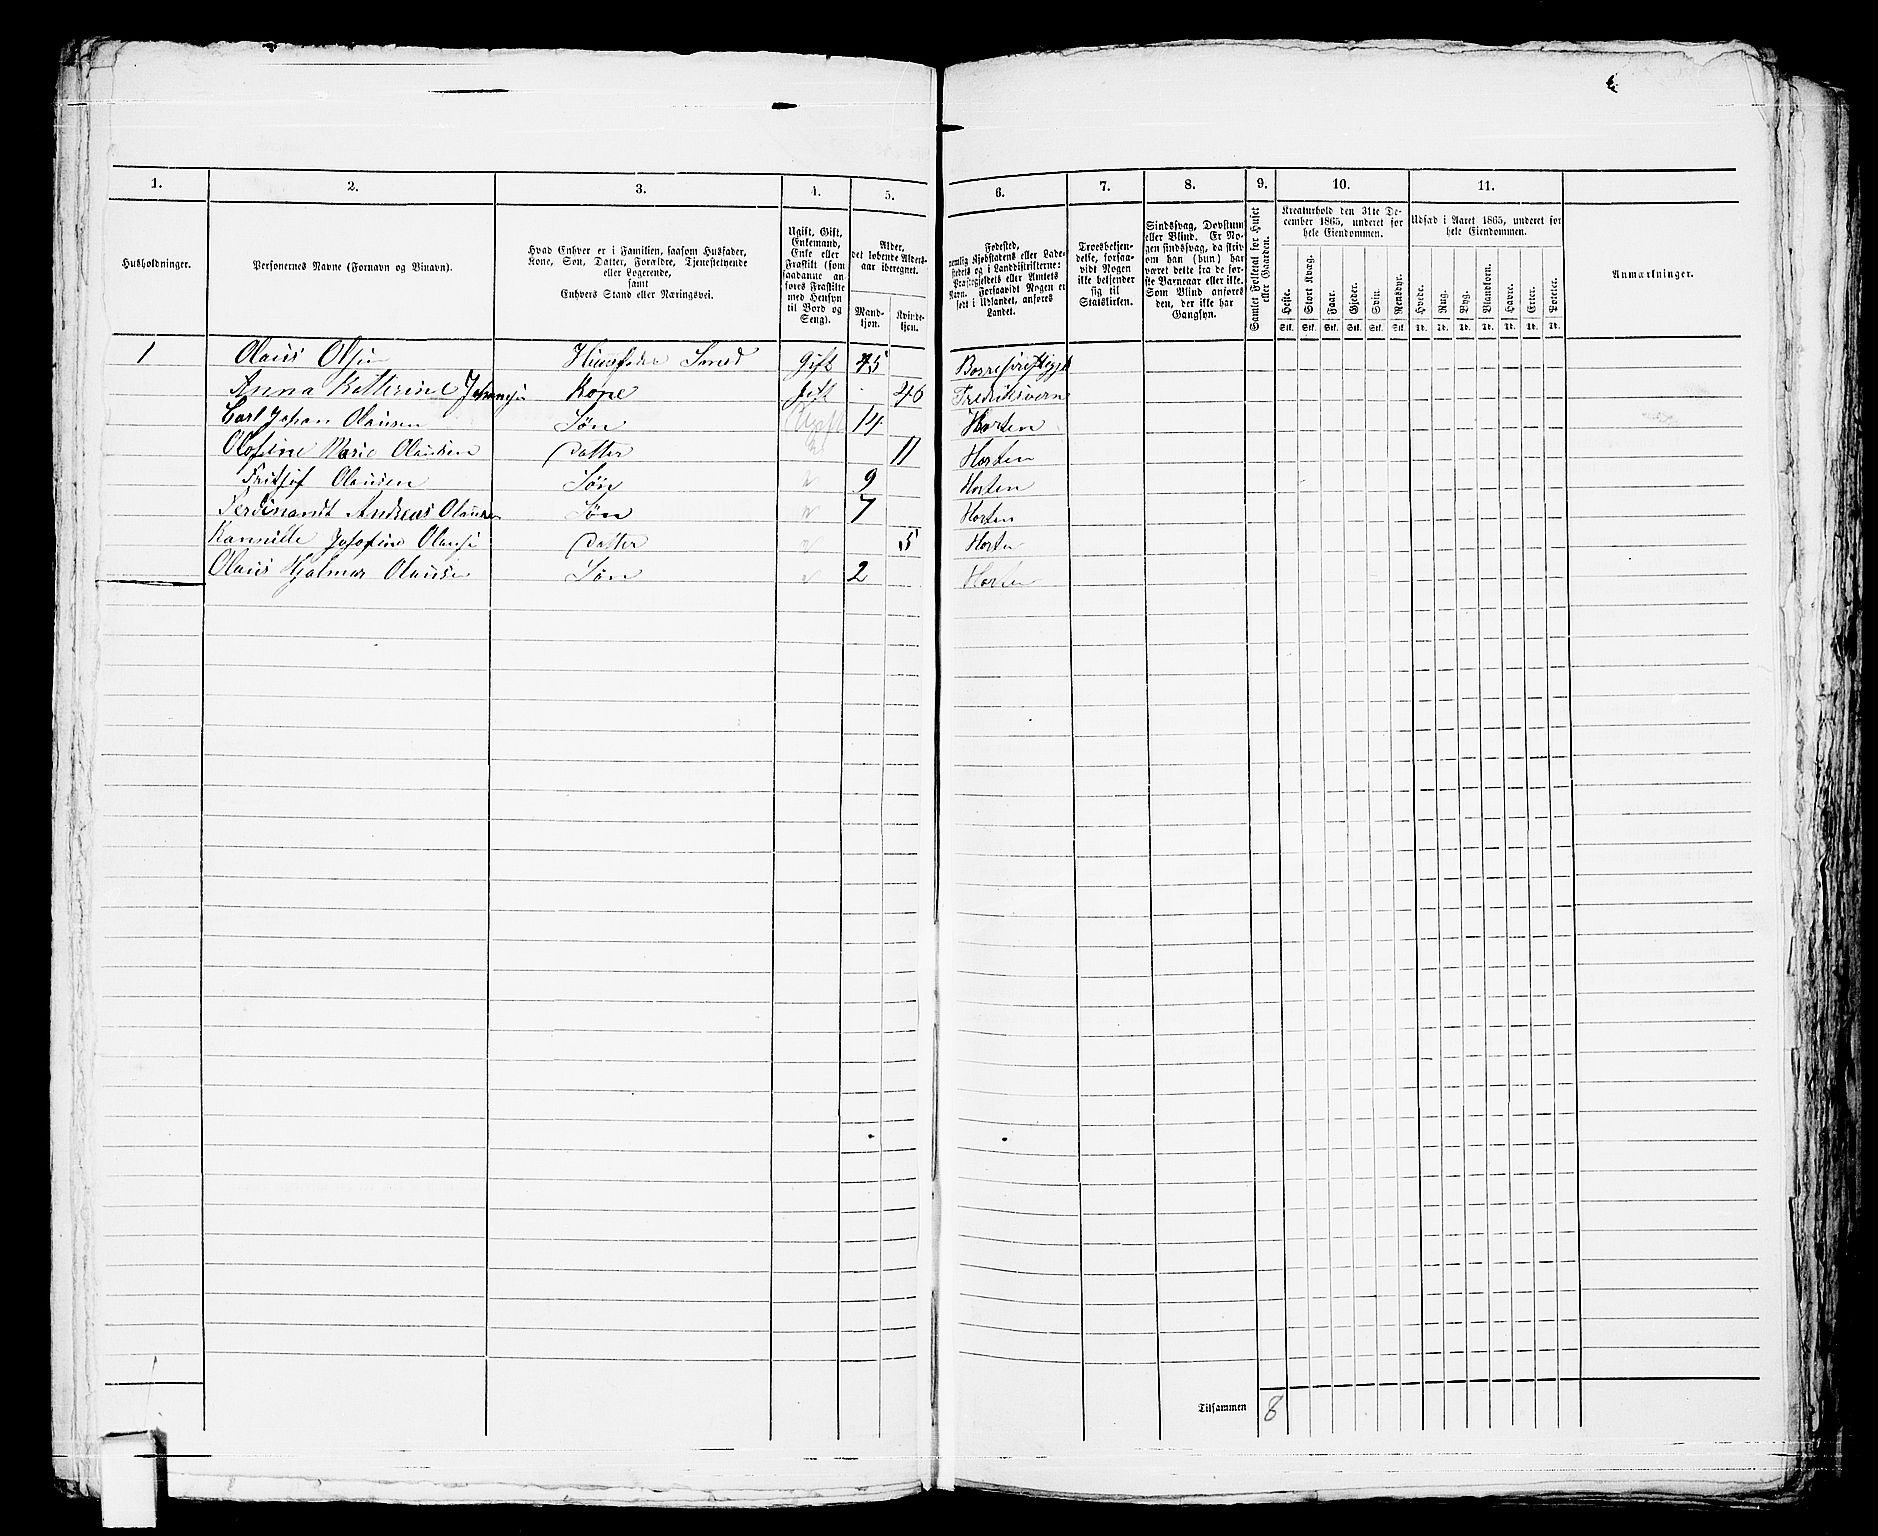 1. 2. 3. 4. 5. 6. 7. 8. 9. 10. 11.
Husholdninger.
Personernes Navne (Fornavn og Binavn).
Hvad Enhver er i Familien, saasom Husfader,
Kone, Søn, Datter, Forældre, Tjenestetyende
eller Logerende,
samt
Enhvers Stand eller Næringsvei.
Ugift, Gift,
Enkemand,
Enke eller
Fraskilt (som
saadanne an-
føres Fraskilte
med Hensyn
til Bord og
Seng).
Alder,
det løbende Alders-
aar iberegnet.
Mand-
kjøn.
Kvinde-
kjøn.
Fødested,
nemlig Kjøbstadens eller Lade-
stedets og i Landdistrikterne:
Præstegjeldets eller Amtets
Navn. Forsaavidt Nogen er
født i Udlandet, anføres
Landet.
Troesbekjen-
delse, forsaa-
vidt Nogen
ikke bekjender
sig til
Statskirken.
Sindssvag, Døvstum
eller Blind. Er No-
gen sindssvag, da skriv
om han (hun) har
været dette fra de før-
ste Barneaar eller ikke.
Som Blind anføres
den, der ikke har
Gangsyn.
Gamlet Folketal for Huset
eller Gaarden.
Kreaturhold den 31te De-
cember 1865, underet for
hele Eiendommen.
Heste. Stort Kvæg. Faar. Gjeder. Svin. Rensdyr.
Stk. Stk. Stk. Stk. Stk. Stk.
Udsæd i Aaret 1865, underet for
hele Eiendommen.
Hvede. Rug. Byg. Blandkorn. Havre. Erter. Poteter.
Td. Td. Td. Td. Td. Td. Td.
Anmærkninger.
1 Olaus Olsen Huusfader Gift 45
Anna Kathrine Kone gift 46 Fredriksvern
Carl Johan Olausen Søn Ugift 14 Horten
Olofine Marie Olausen Datter 11 Horten
Fritjof Olausen Søn 9 Horten
Ferdinandt Andreas Olausen Søn 7 Horten
Josofine Olausen Datter 5 Horten
Olaus Hjalmar Olausen Søn 2 Horten
Tilsammen 8